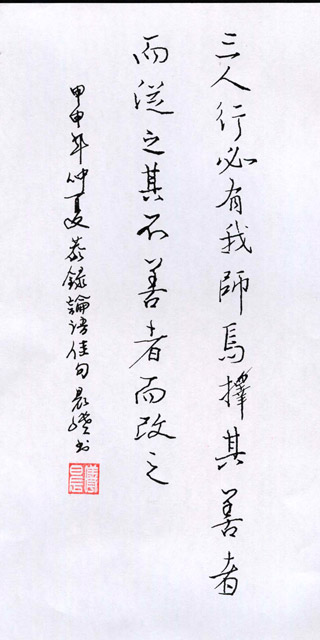 三人行必有我師焉擇其善者
而從之其不善者而改之
甲申年仲夏恭錄論語佳句晨